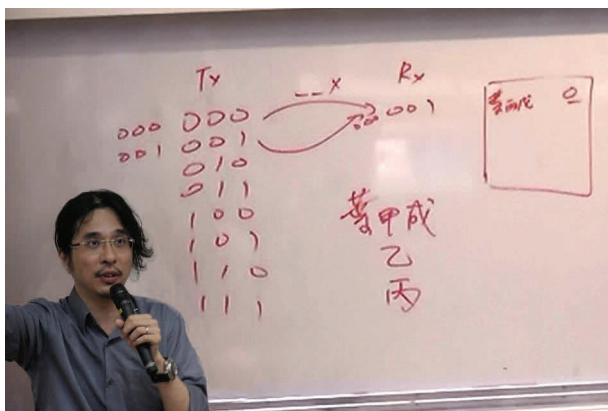 Tx __x Rx
000 000 001
001 001
010
011
100
101
110
111
葉甲成
乙
丙
葉丙成 0